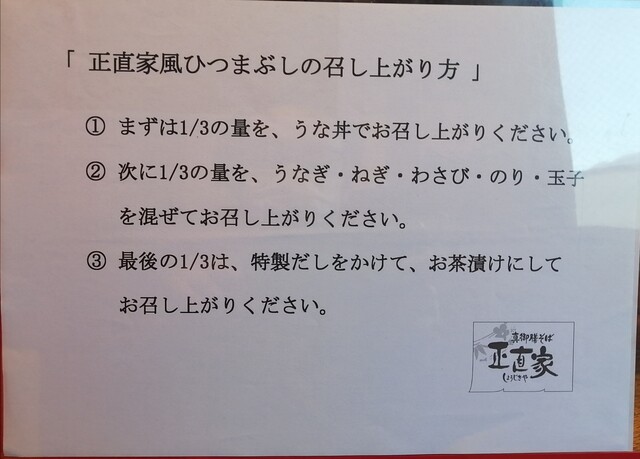 「 正直家風ひつまぶしの召し上がり方 」
① まずは1/3の量を、うな丼でお召し上がりください。
② 次に1/3の量を、うなぎ・ねぎ・わさび・のり・玉子
を混ぜてお召し上がりください。
③ 最後の1/3は、特製だしをかけて、お茶漬けにして
お召し上がりください。
真御膳そば
正直家
しょうじきや